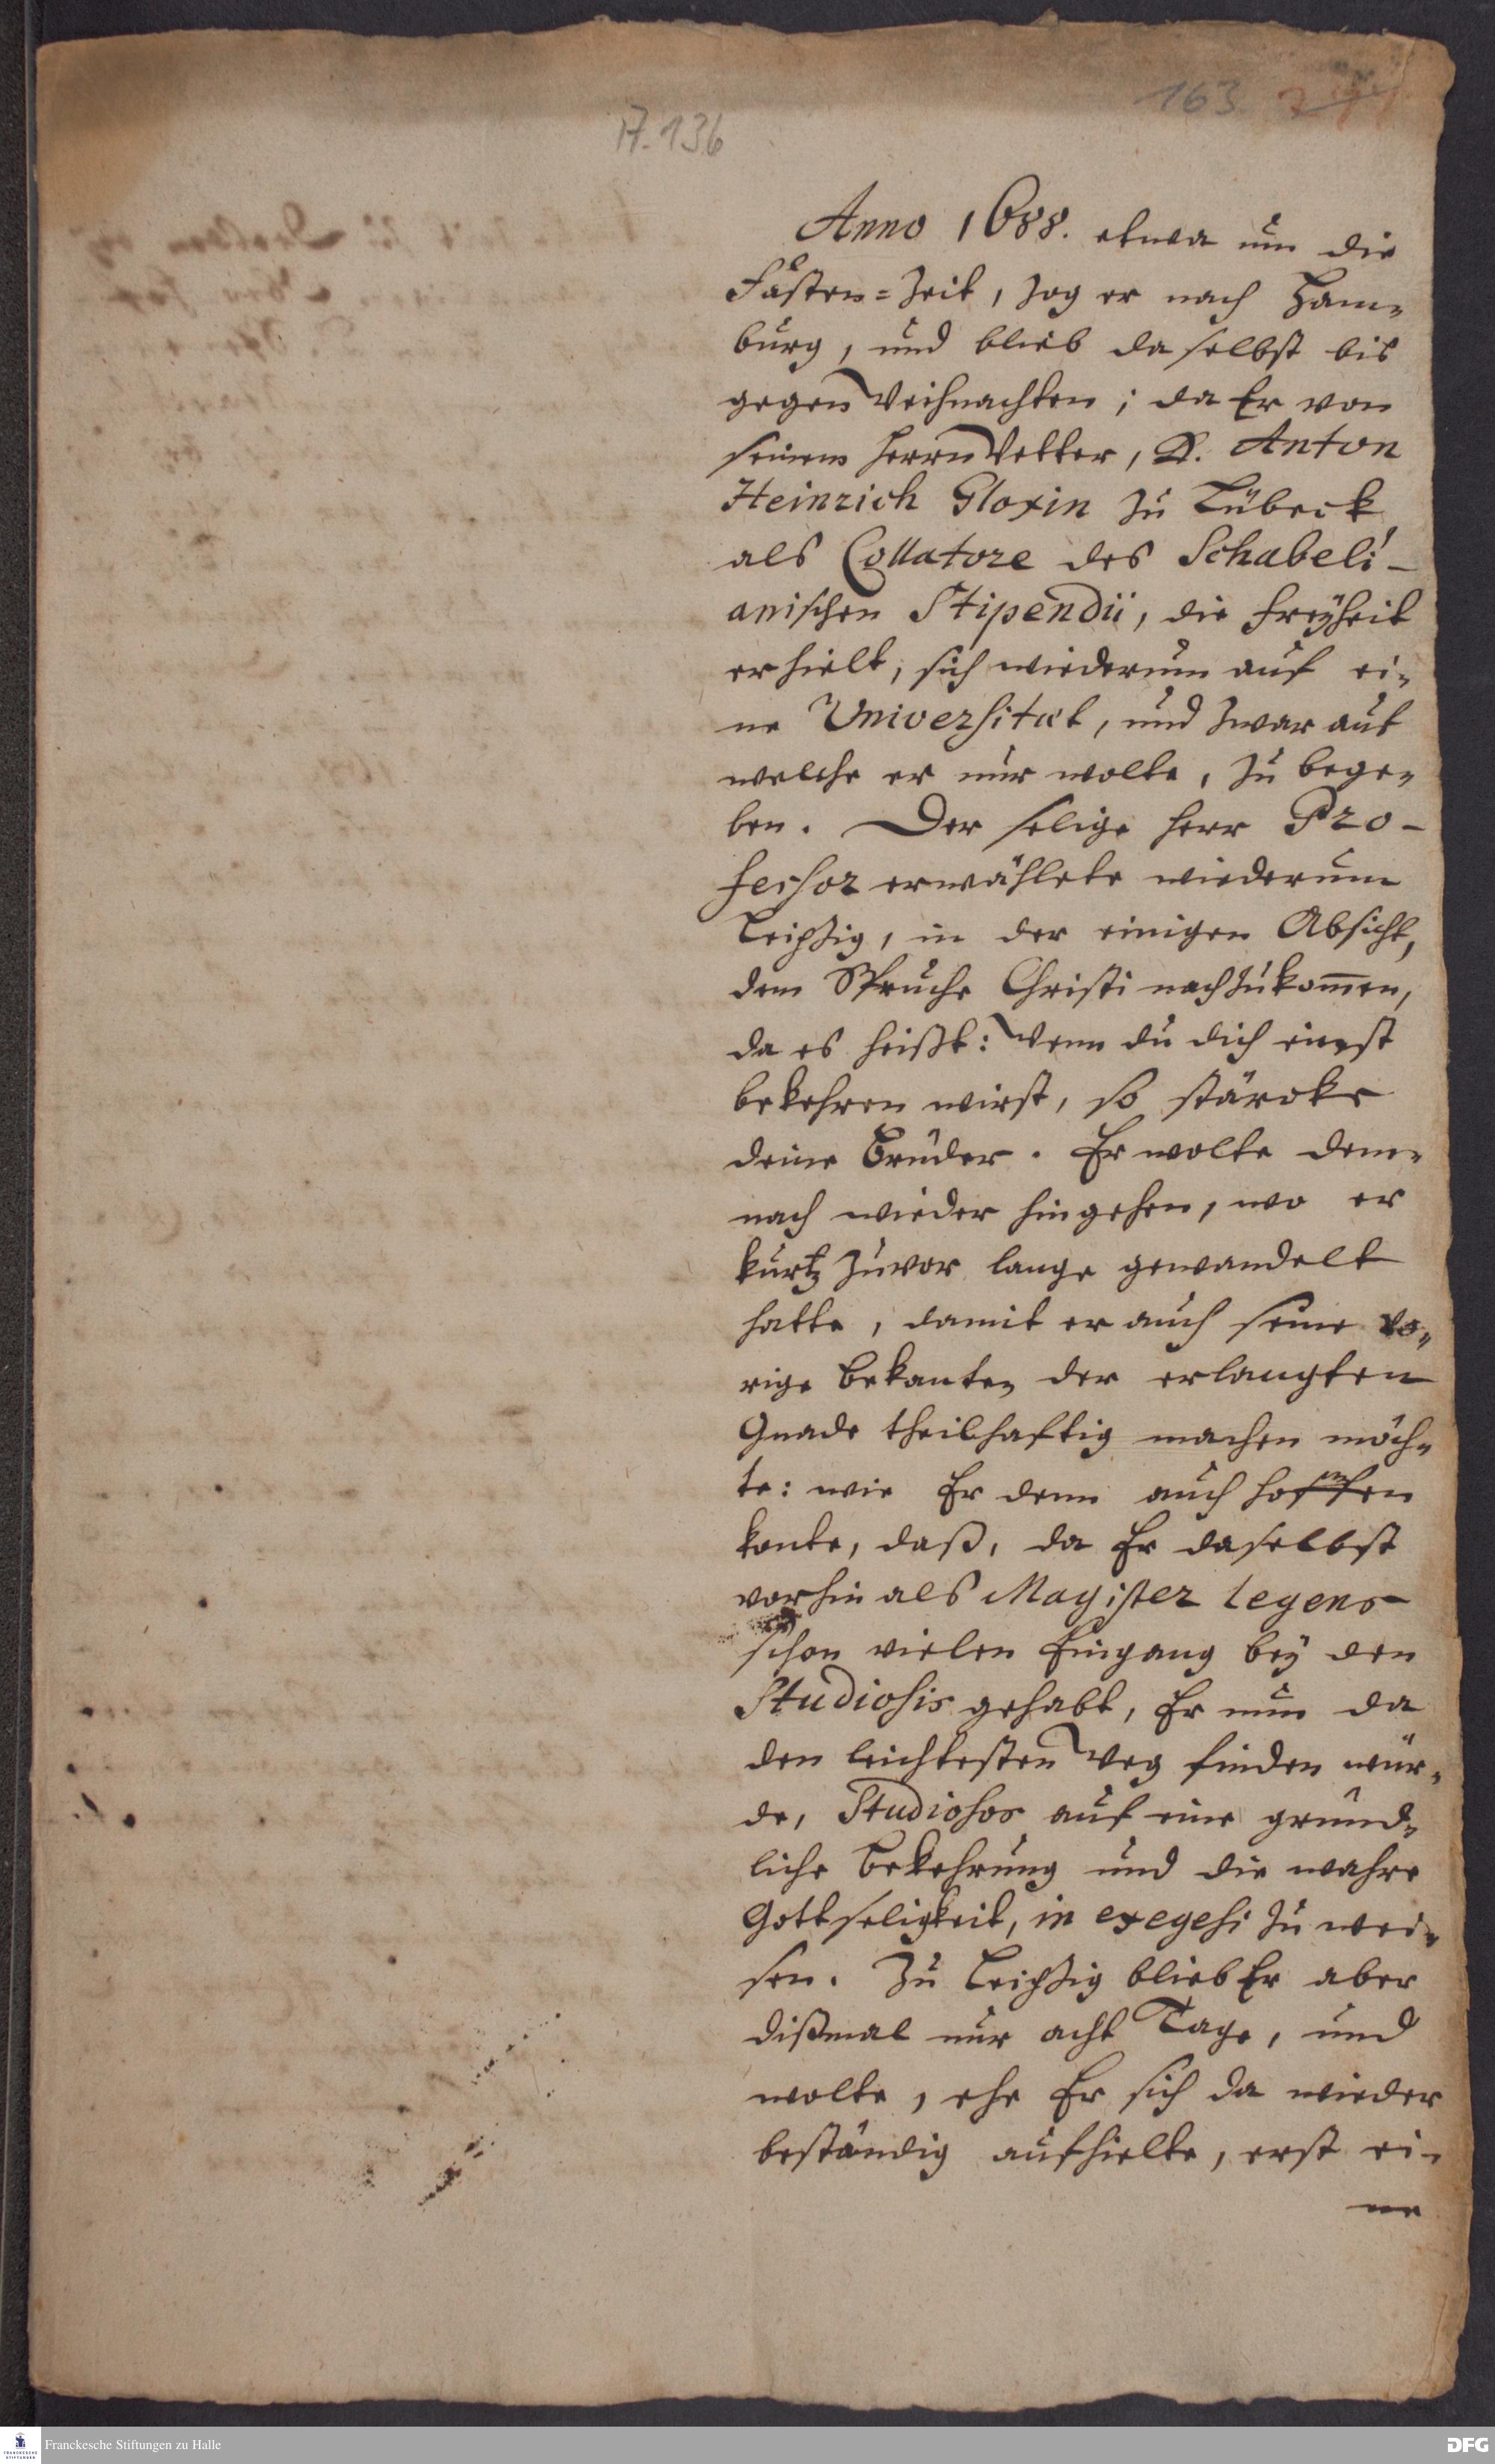 163
17.136
Anno 1688. etwa um die
Fasten=Zeit, zog er nach Ham-
burg, und blieb daselbst bis
gegen Weihnachten; da Er von
seinem Herrn Vetter, D. Anton
Heinrich Gloxin zu Lübeck
als Collatore des Schabeli-
anischen Stipendii, die Freyheit
erhielt, sich wiederum auf ei-
ne Universitæt, und zwar auf
welche er nur wolte, zu bege-
ben. Der selige Herr Pro-
fessor erwählete wiederum
Leipzig, in der einigen Absicht,
dem Spruche Christi nachzukom̅en,
da es heißt: Wenn du dich einst
bekehren wirst, so stärcke
deine Brüder. Er wolte dem-
nach wieder hingehen, wo er
kurtz zuvor lange gewandelt
hatte, damit er auch seine vo-
rige Bekanten der erlangten
Gnade theilhaftig machen möch-
te: wie Er denn auch hoffen
konte, daß, da Er daselbst
vorhin als Magister legens
schon vielen Eingang bey den
Studiosis gehabt, Er nun da
den leichtesten Weg finden wür-
de, Studiosos auf eine gründ-
liche Bekehrung und die wahre
Gottseligkeit, in exegesi zu wei-
sen. Zu Leipzig blieb Er aber
dißmal nur acht Tage, und
wolte, ehe Er sich da wieder
beständig aufhielte, erst ei-
ne
Franckesche Stiftungen zu Halle
DFG